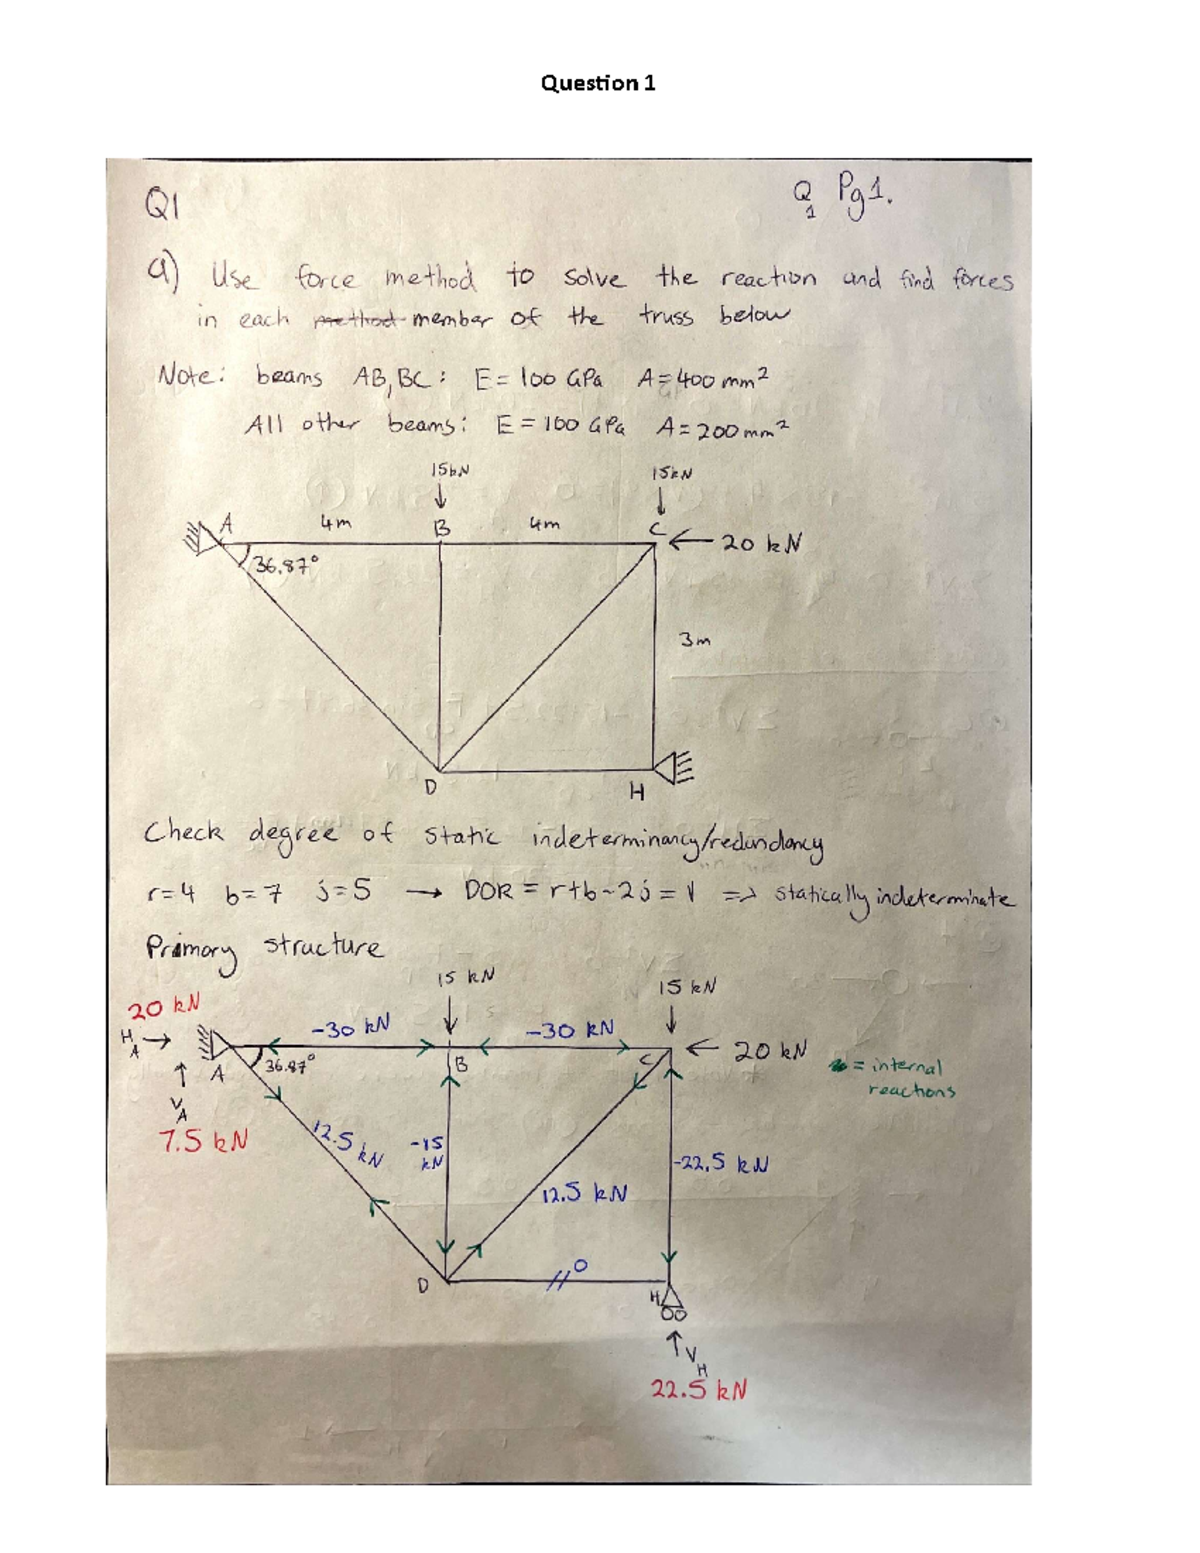 Question 1
Q1
Q1 Pg1.
a) Use force method to solve the reaction and find forces
in each method member of the truss below
Note: beams AB, BC: E = 100 GPa A = 400 mm²
All other beams: E = 100 GPa A = 200 mm²
15kN 15kN
A 4m B 4m C ← 20 kN
36.87°
3m
D H
Check degree of static indeterminancy/redundancy
r=4 b=7 j=5 → DOR = r+b-2j = 1 => statically indeterminate
Primary structure
15 kN 15 kN
20 kN
HA → -30 kN -30 kN ← 20 kN
A 36.87° B C = internal
reactions
VA
7.5 kN
12.5 kN -15 kN 12.5 kN -22.5 kN
D 0 H
↑ VH
22.5 kN